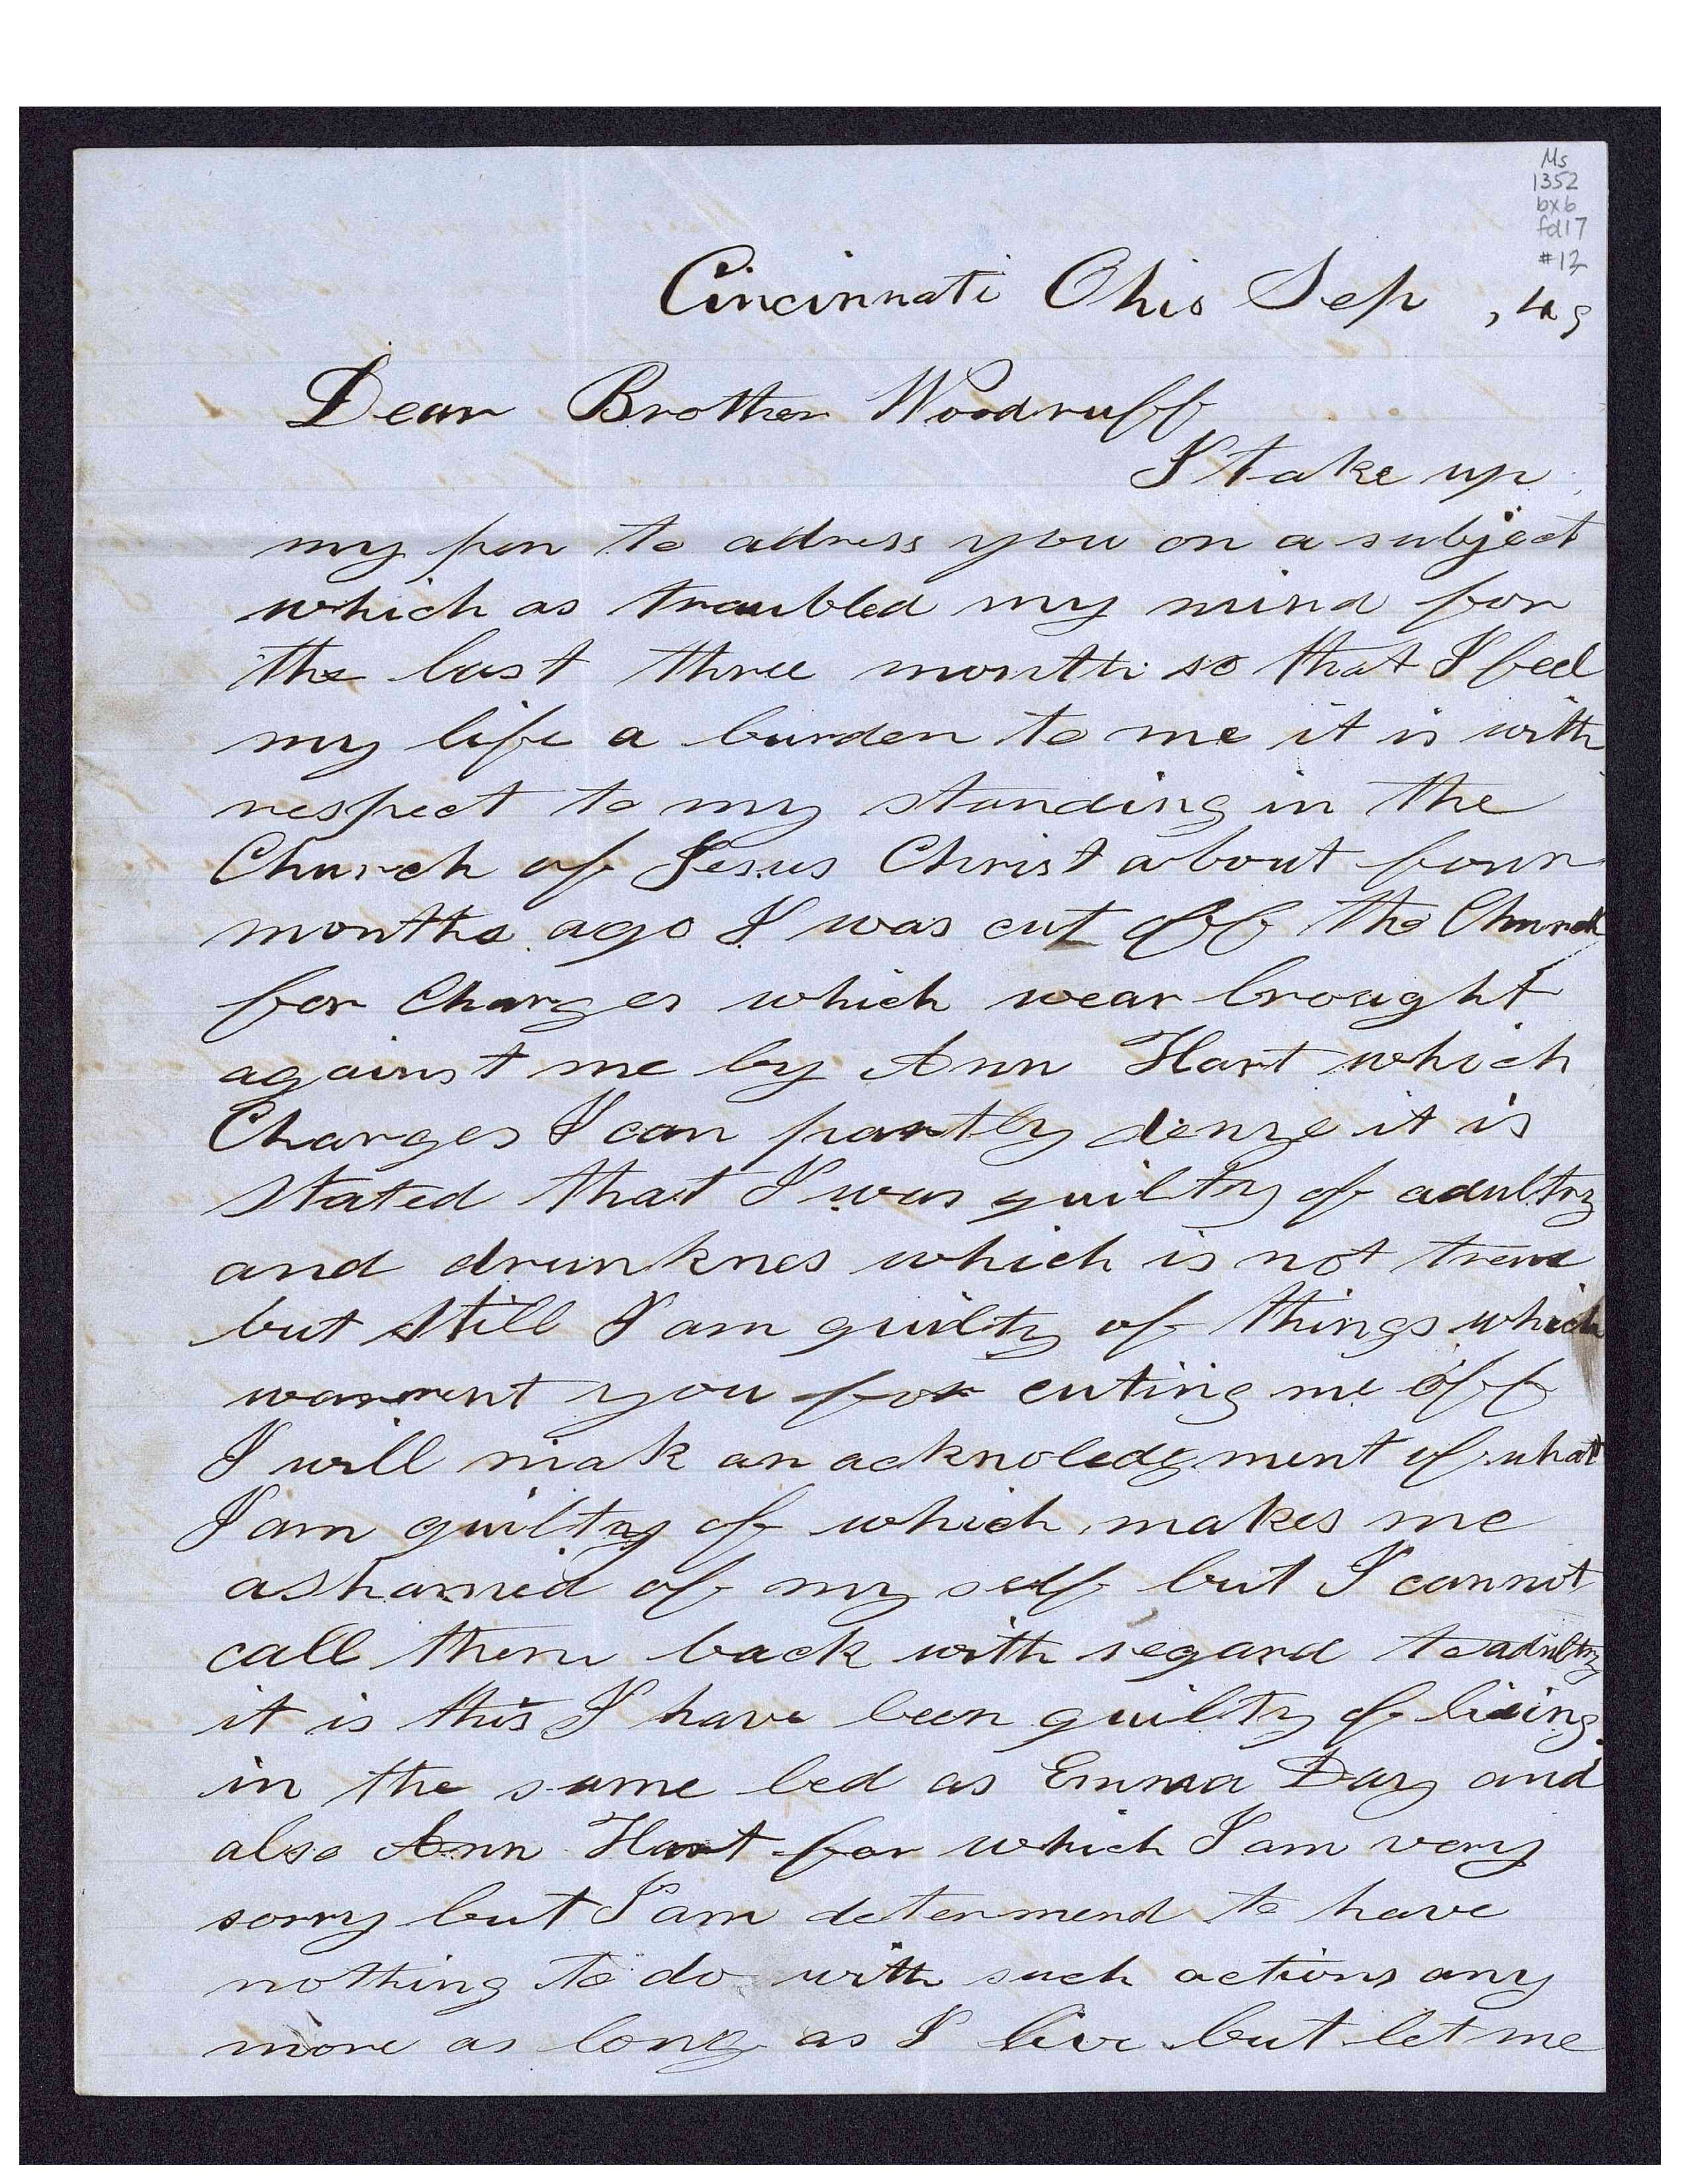 Ms
1352
bx6
fd17
#12
Cincinnati Ohio Sep , 49
Dear Brother Woodruff
I take up
my pen to adress you on a subject
which as troubled my mind for
the last three month so that I feel
my life a burden to me it is with
respect to my standing in the
Church of Jesus Christ about four
months ago I was cut off the Church
for Charges which wear brought
against me by Ann Hart which
Charges I can partly denye it is
stated that I was guilty of adultry
and drunknes which is not true
but still I am guilty of things which
warrent you for cuting me off
I will mak an acknoledgment of what
I am guilty of which makes me
ashamed of my self but I cannot
call them back with regard to adultry
it is this I have been guilty of lieing
in the same bed as Emma Day and
also Ann Hart for which I am very
sorry but I am determend to have
nothing to do with such actions any
more as long as I live but let me